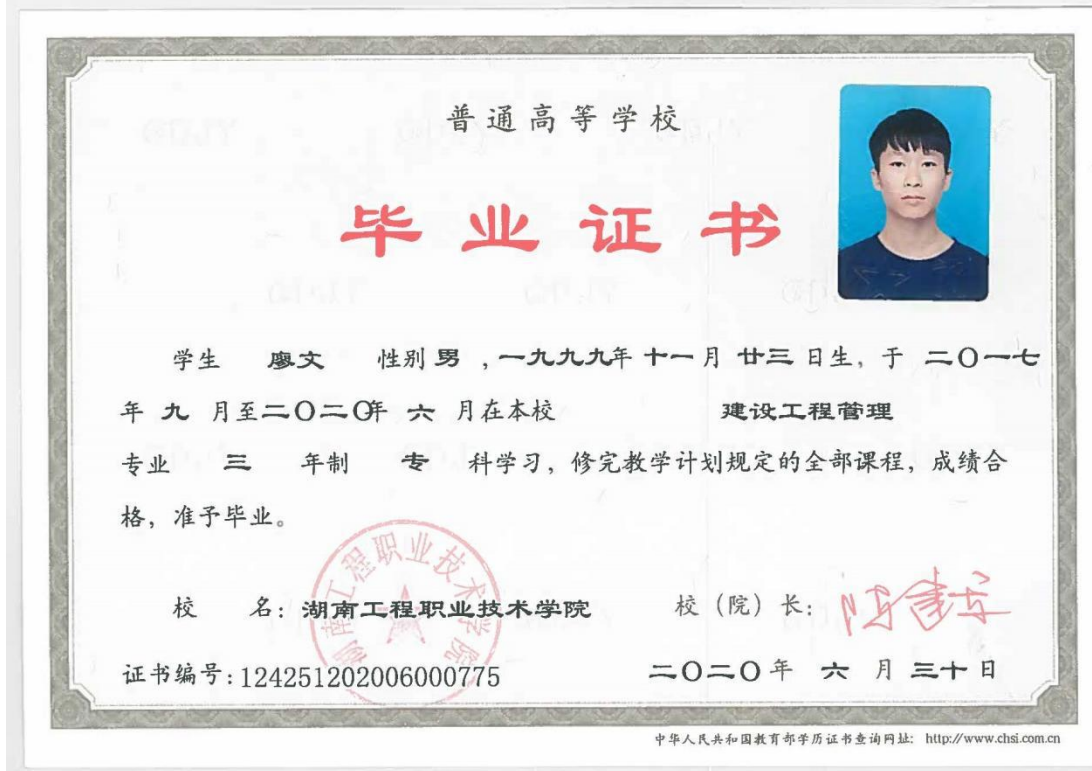 普通高等学校
毕业证书
学生 廖文 性别 男 ，一九九九年 十一 月 廿三 日生，于 二〇一七
年 九 月至二〇二〇年 六 月在本校 建设工程管理
专业 三 年制 专 科学习，修完教学计划规定的全部课程，成绩合
格，准予毕业。
湖南工程职业技术学院
校 名：湖南工程职业技术学院 校（院）长：
证书编号：124251202006000775 二〇二〇年 六 月 三十 日
中华人民共和国教育部学历证书查询网址： http://www.chsi.com.cn